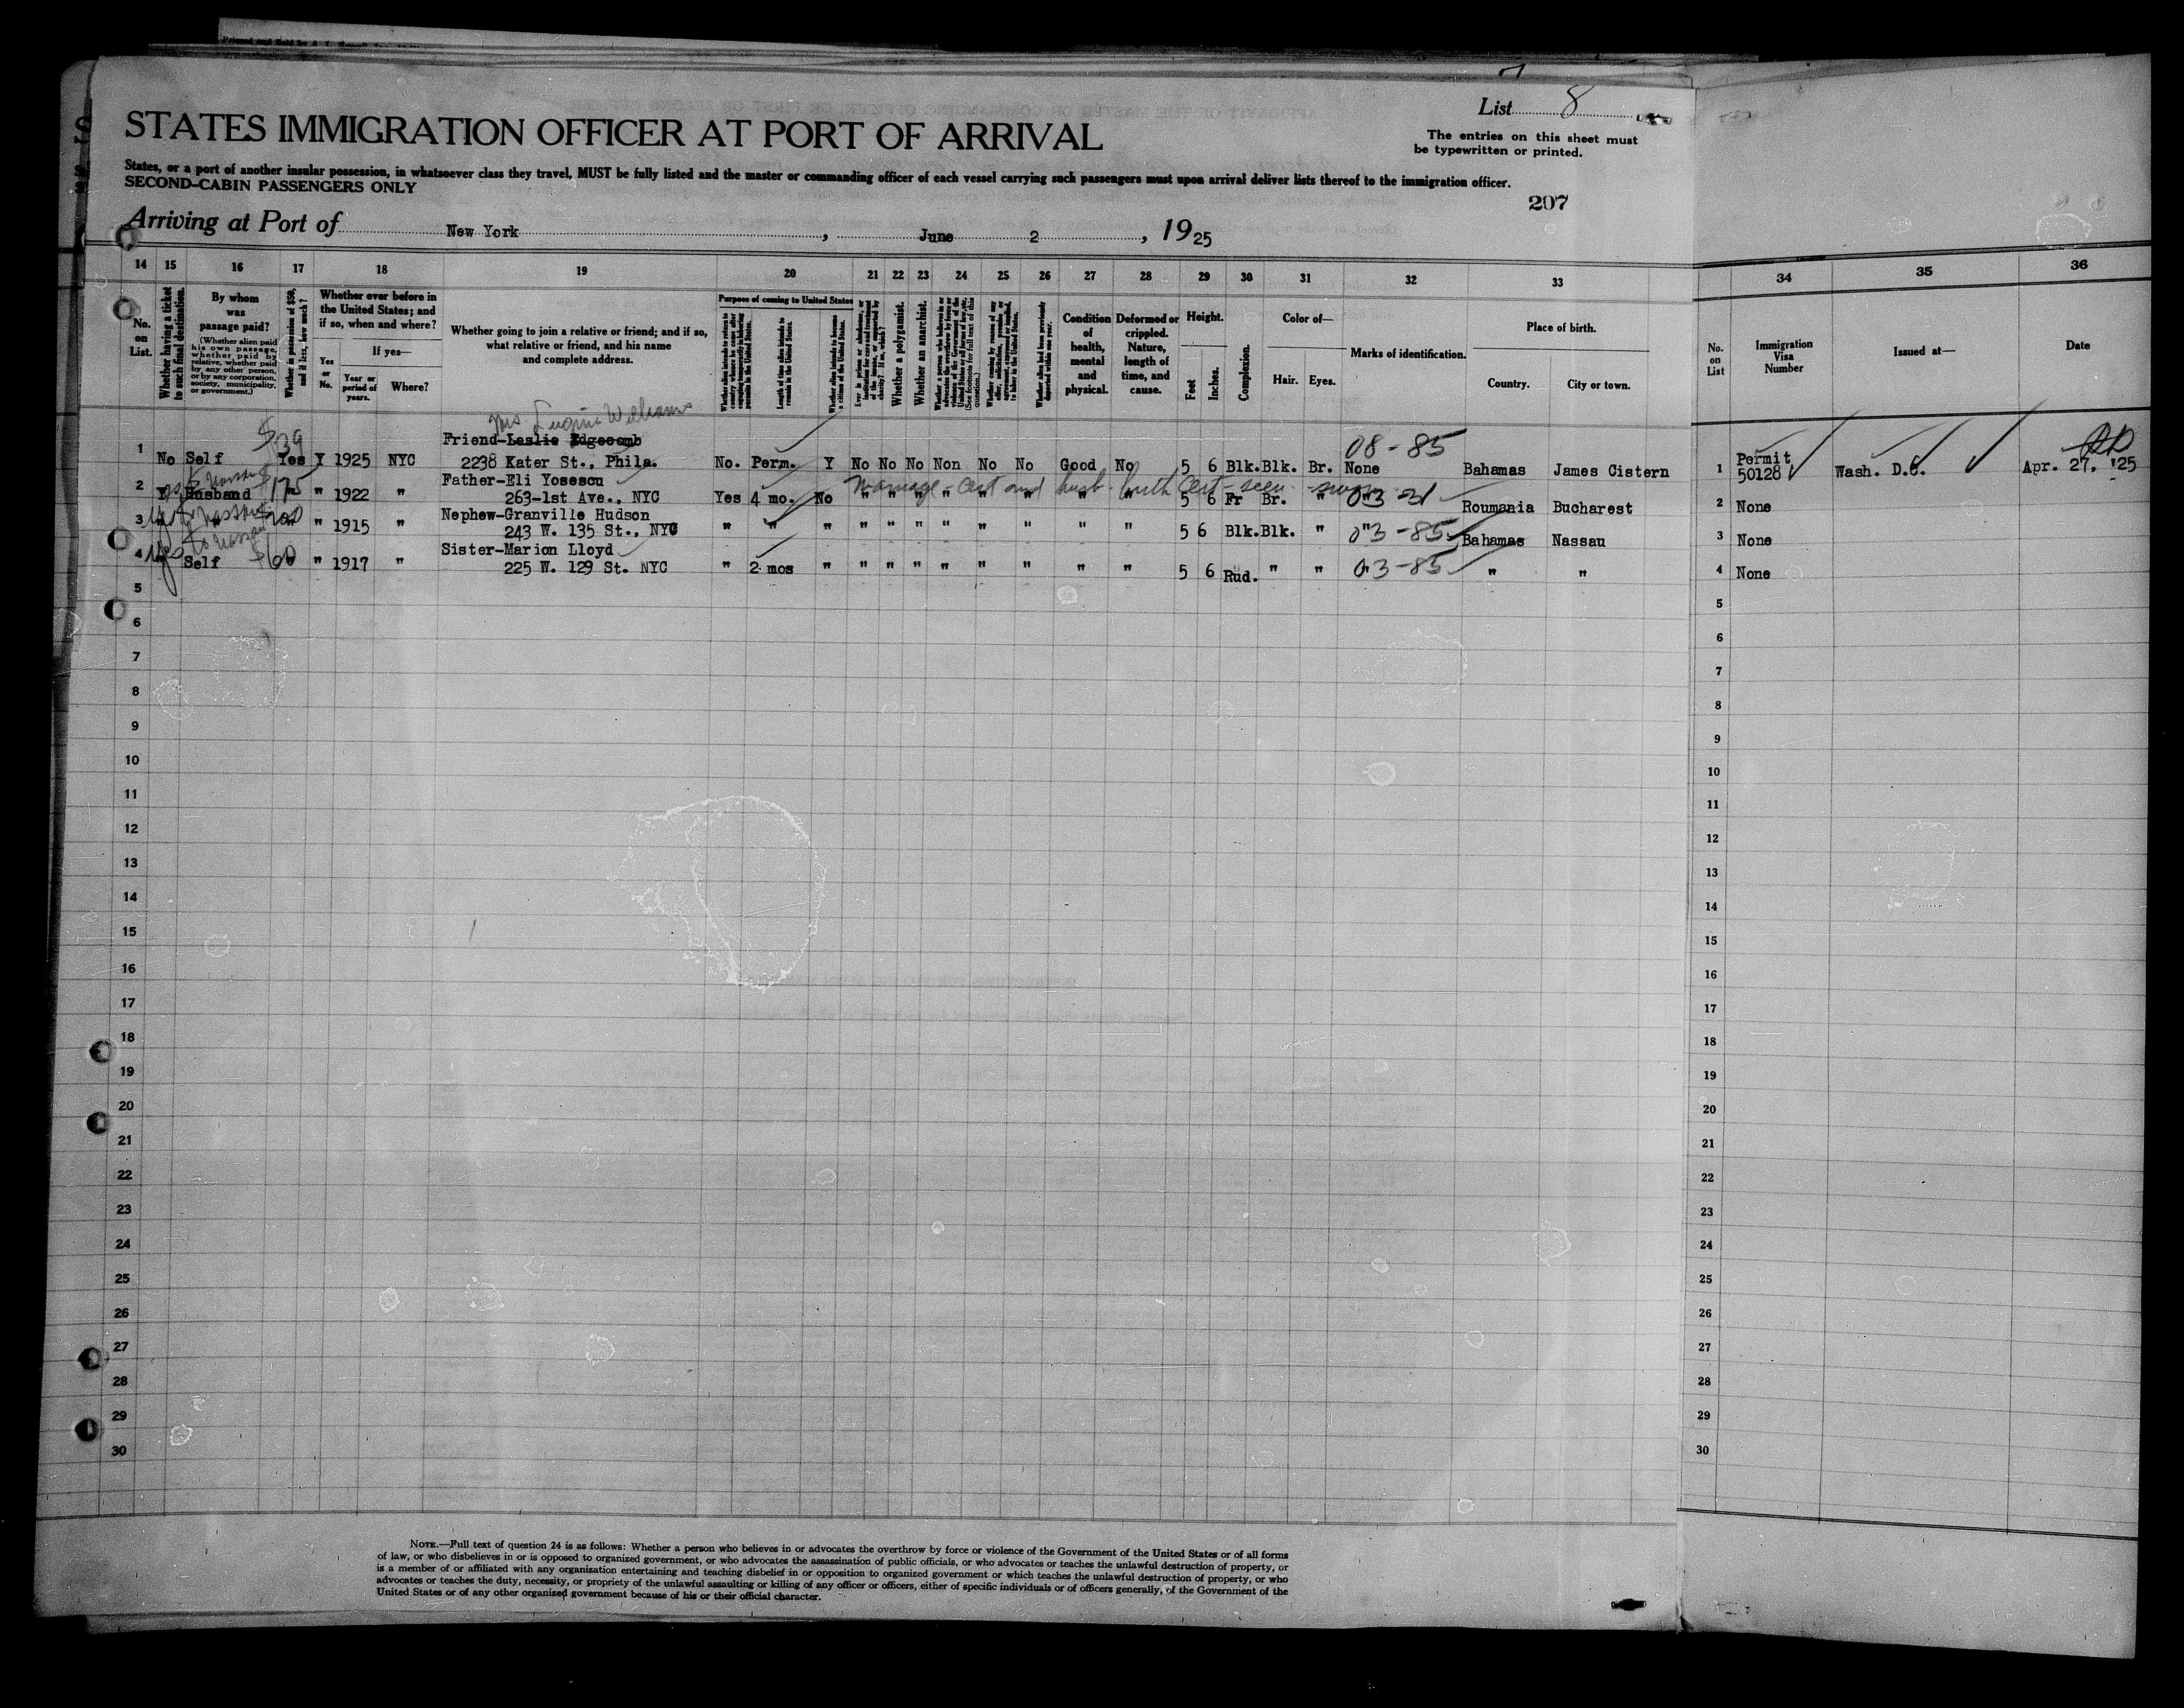 List 8
STATES IMMIGRATION OFFICER AT PORT OF ARRIVAL
The entries on this sheet must
be typewritten or printed.
States, or a port of another insular possession, in whatsoever class they travel, MUST be fully listed and the master or commanding officer of each vessel carrying such passengers must upon arrival deliver lists thereof to the immigration officer.
SECOND-CABIN PASSENGERS ONLY
207
Arriving at Port of New York, June 2, 1925
14 15 16 17 18 19 20 21 22 23 24 25 26 27 28 29 30 31 32 33 34 35 36
No. on List.
Whether having a ticket to such final destination.
By whom was passage paid?
(Whether alien paid his own passage, whether paid by relative, whether paid by any other person, or by any corporation, society, municipality, or government.)
Whether in possession of $50, and if less, how much?
Whether ever before in the United States; and if so, when and where?
Yes or No.
If yes—
Year or period of years.
Where?
Whether going to join a relative or friend; and if so, what relative or friend, and his name and complete address.
Purpose of coming to United States
Length of time alien intends to remain in the United States.
Whether alien intends to become a citizen of the United States.
Whether a polygamist.
Whether an anarchist.
(See footnote for full text of this question.)
Condition of health, mental and physical.
Deformed or crippled. Nature, length of time, and cause.
Height.
Feet Inches.
Complexion.
Color of—
Hair. Eyes.
Marks of identification.
Place of birth.
Country. City or town.
No. on List
Immigration Visa Number
Issued at—
Date
Mrs Eugene Williams
$39
08-85
1 No Self Yes Y 1925 NYC Friend-Leslie Edgecomb
2238 Kater St., Phila. No. Perm. Y No No No Non No No Good No 5 6 Blk. Blk. Br. None Bahamas James Cistern 1 Permit 50128 Wash. D.C. Apr. 27. '25
Marriage - Cert and husb. birth Cert - seen
2 Y Husband $175 " 1922 " Father-Eli Yosescu
263-1st Ave., NYC Yes 4 mo. No " " " " " " " " 5 6 Fr Br. " " 03 31 Roumania Bucharest 2 None
3 Yes to Nassau " $200 " 1915 " Nephew-Granville Hudson
243 W. 135 St., NYC " " " " " " " " " " " 5 6 Blk. Blk. " " 03-85 Bahamas Nassau 3 None
4 Yes to Nassau Self $60 " 1917 " Sister-Marion Lloyd
225 W. 129 St. NYC " 2 mos " " " " " " " " " 5 6 Rud. " " " 03-85 " " 4 None
5 5
6 6
7 7
8 8
9 9
10 10
11 11
12 12
13 13
14 14
15 15
16 16
17 17
18 18
19 19
20 20
21 21
22 22
23 23
24 24
25 25
26 26
27 27
28 28
29 29
30 30
NOTE.—Full text of question 24 is as follows: Whether a person who believes in or advocates the overthrow by force or violence of the Government of the United States or of all forms
of law, or who disbelieves in or is opposed to organized government, or who advocates the assassination of public officials, or who advocates or teaches the unlawful destruction of property, or
is a member of or affiliated with any organization entertaining and teaching disbelief in or opposition to organized government or which teaches the unlawful destruction of property, or who
advocates or teaches the duty, necessity, or propriety of the unlawful assaulting or killing of any officer or officers, either of specific individuals or of officers generally, of the Government of the
United States or of any other organized government because of his or their official character.